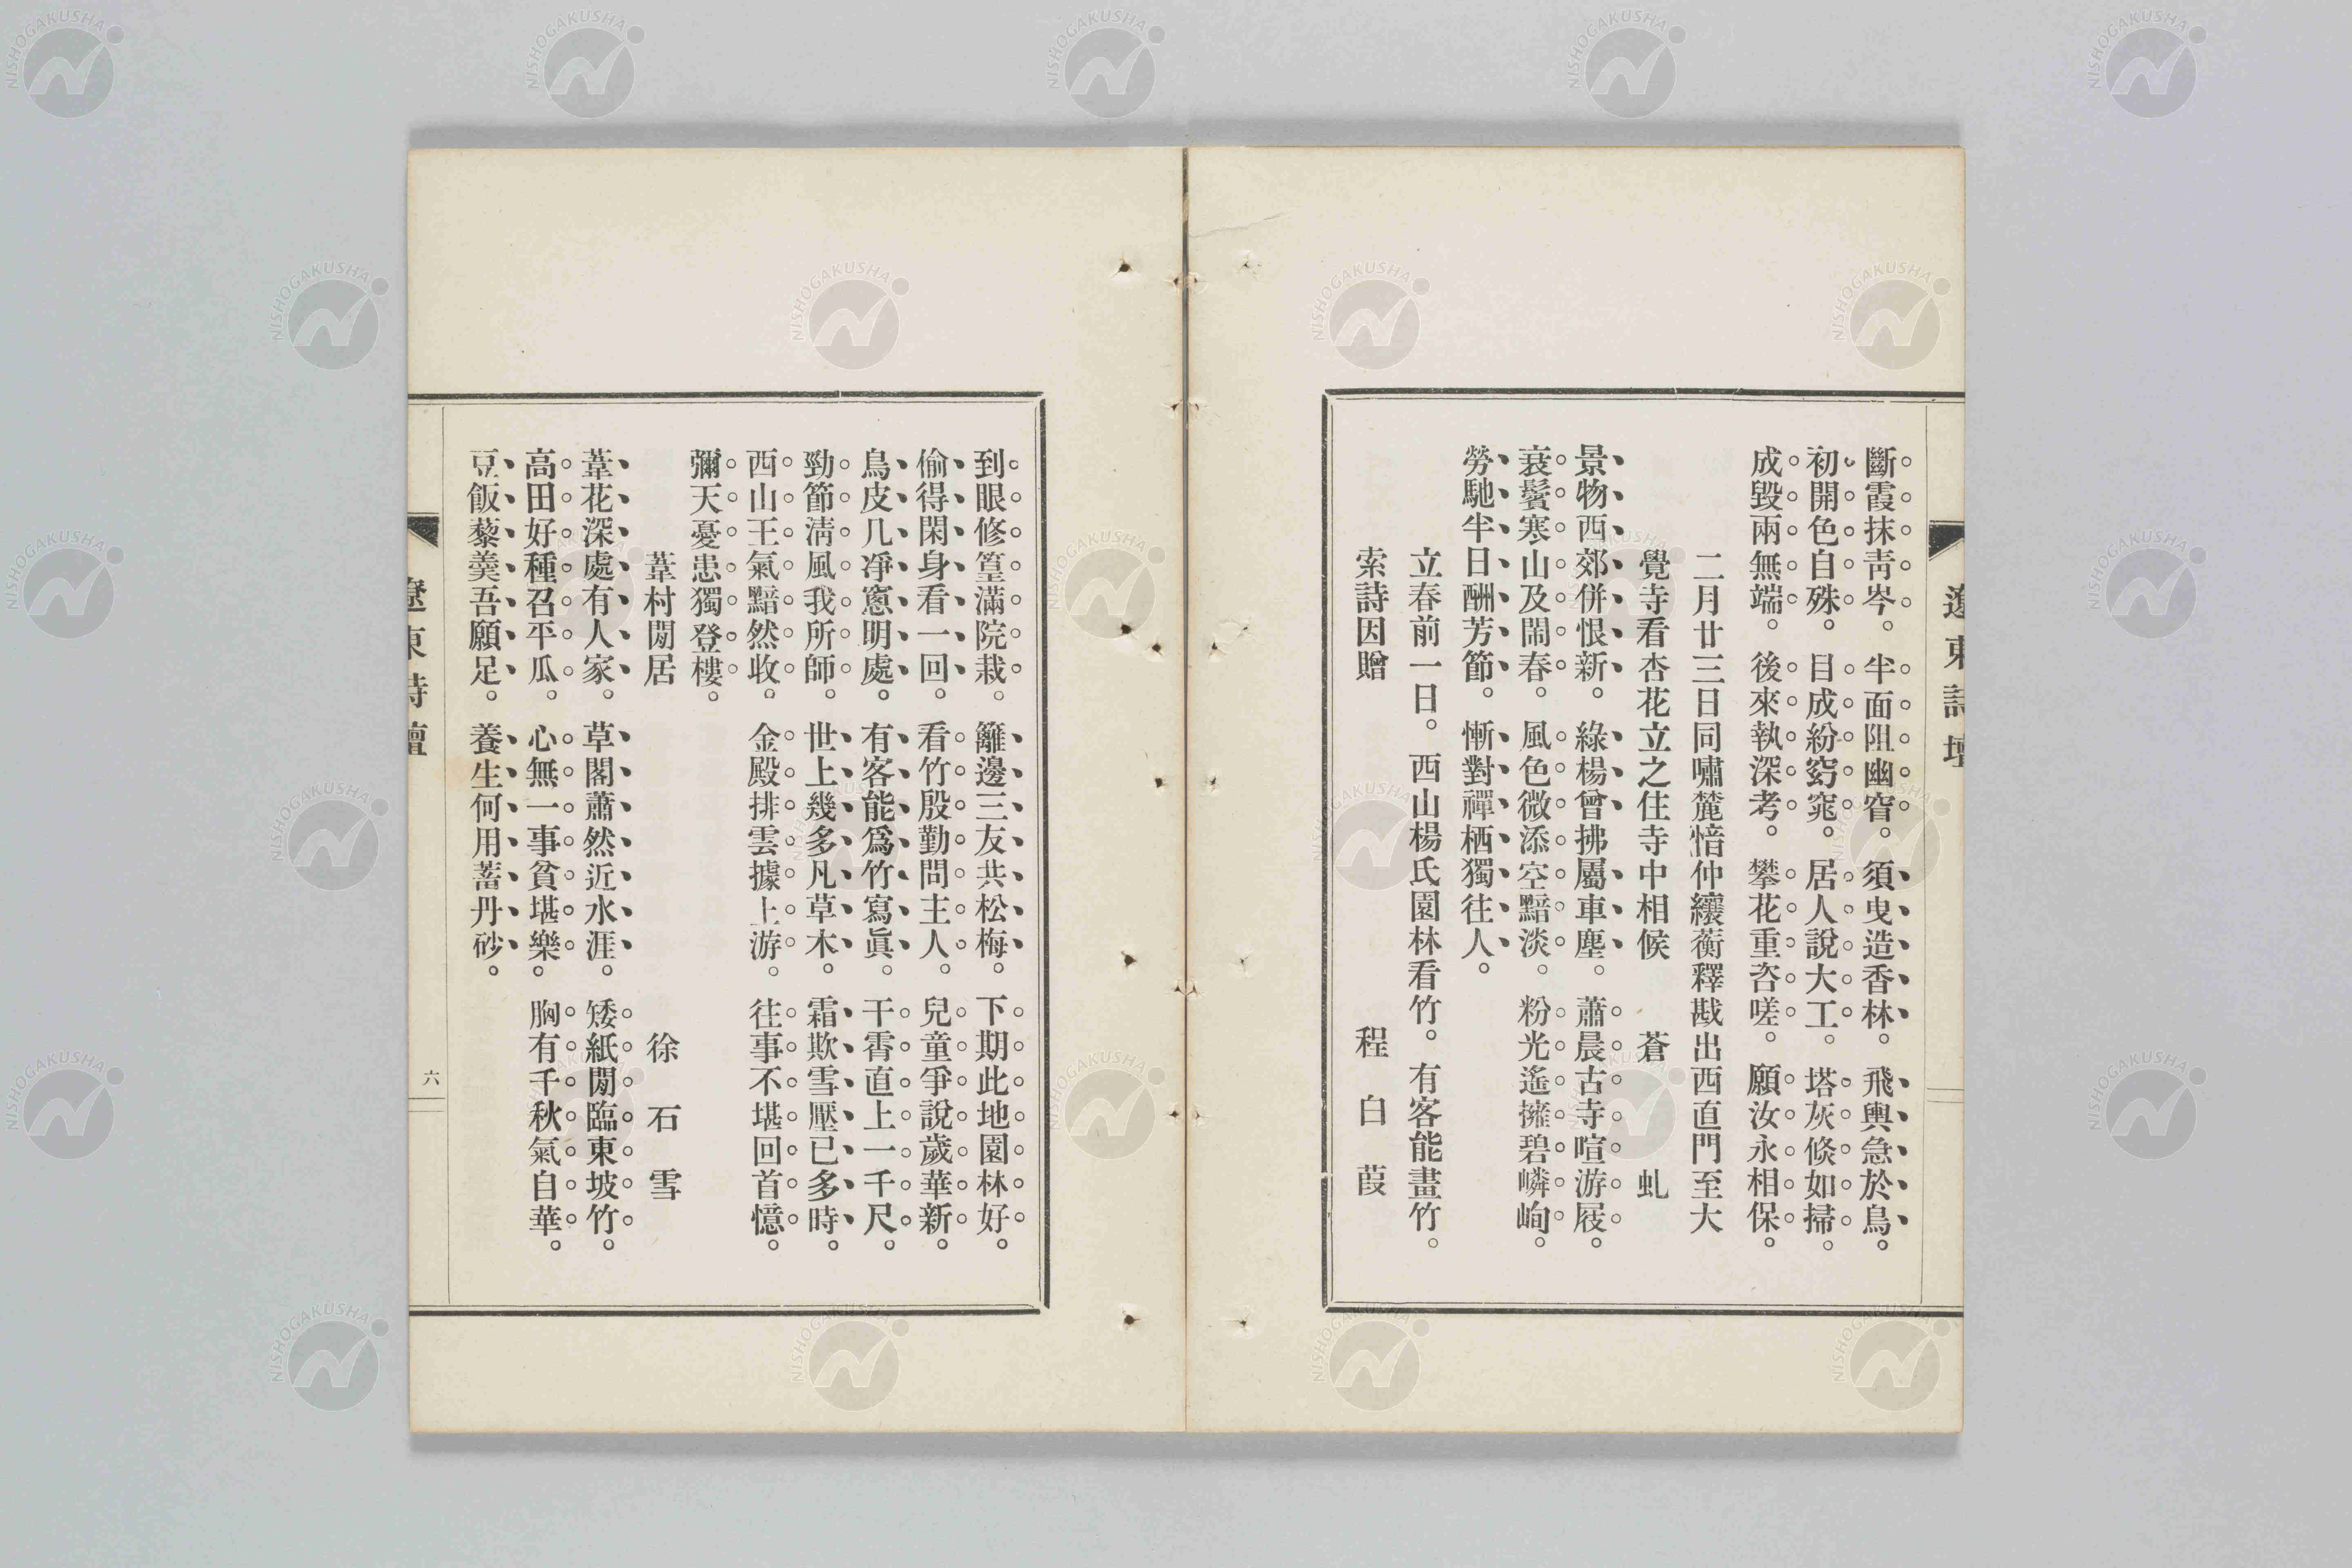 遼東詩壇
斷霞抹靑岑。半面阻幽窅。須曳造香林。飛輿急於鳥。
初開色自殊。目成紛窈窕。居人說大工。塔灰倐如掃。
成毀兩無端。後來執深考。攀花重咨嗟。願汝永相保。
二月廿三日同嘯麓愔仲纕蘅釋戡出西直門至大
覺寺看杏花立之住寺中相候　蒼虬
景物西郊併恨新。綠楊曾拂屬車塵。蕭晨古寺喧游屐。
衰鬢寒山及閙春。風色微添空黯淡。粉光遙擁碧嶙峋。
勞馳半日酬芳節。慚對禪栖獨往人。
立春前一日。西山楊氏園林看竹。有客能畫竹。
索詩因贈　程白葭
到眼修篁滿院栽。籬邊三友共松梅。下期此地園林好。
偷得閑身看一回。看竹殷勤問主人。兒童爭說歲華新。
烏皮几凈窻明處。有客能爲竹寫眞。干霄直上一千尺。
勁節淸風我所師。世上幾多凡草木。霜欺雪壓已多時。
西山王氣黯然收。金殿排雲據上游。往事不堪回首憶。
彌天憂患獨登樓。
葦村閒居　徐石雪
葦花深處有人家。草閣蕭然近水涯。矮紙閒臨東坡竹。
高田好種召平瓜。心無一事貧堪樂。胸有千秋氣自華。
豆飯藜羹吾願足。養生何用蓄丹砂。
遼東詩壇
六
NISHOGAKUSHA